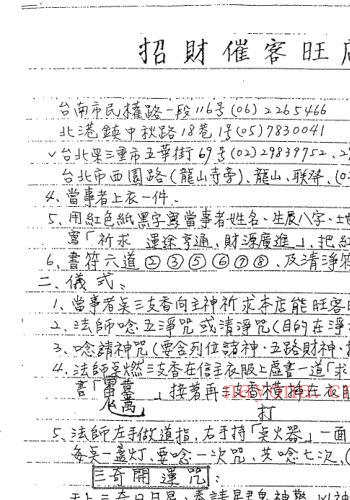 招財催客旺店
台南市民權路一段116号(06)2265466
北港鎮中秋路18巷1号(05)7830041
台北県三重市五華街69号(02)29839752、2
台北市西園路(龍山寺旁)、龍山、联発、(0
4、當事者上衣一件、
5、用紅色紙黑字寫當事者姓名、生辰八字、地
寫「祈求 運途亨通、財源廣進」、把紅
6、書符六道②③⑤⑥⑦⑧、及清淨符
二、儀式：
1、當事者吳三支香向主神祈求本店能旺客
2、法師唸五淨咒或清淨咒(目的在淨
3、唸請神咒(要含列位諸神、五路財神、
4、法師吳燃三支香在信主衣服上虛書一道「求
書「 」接著再 香橫掃在衣服
打
5、法師左手做道指、右手持「吳火器」一面
每吳一盞灯、要唸一次咒、共唸七次、(
三奇開運咒：